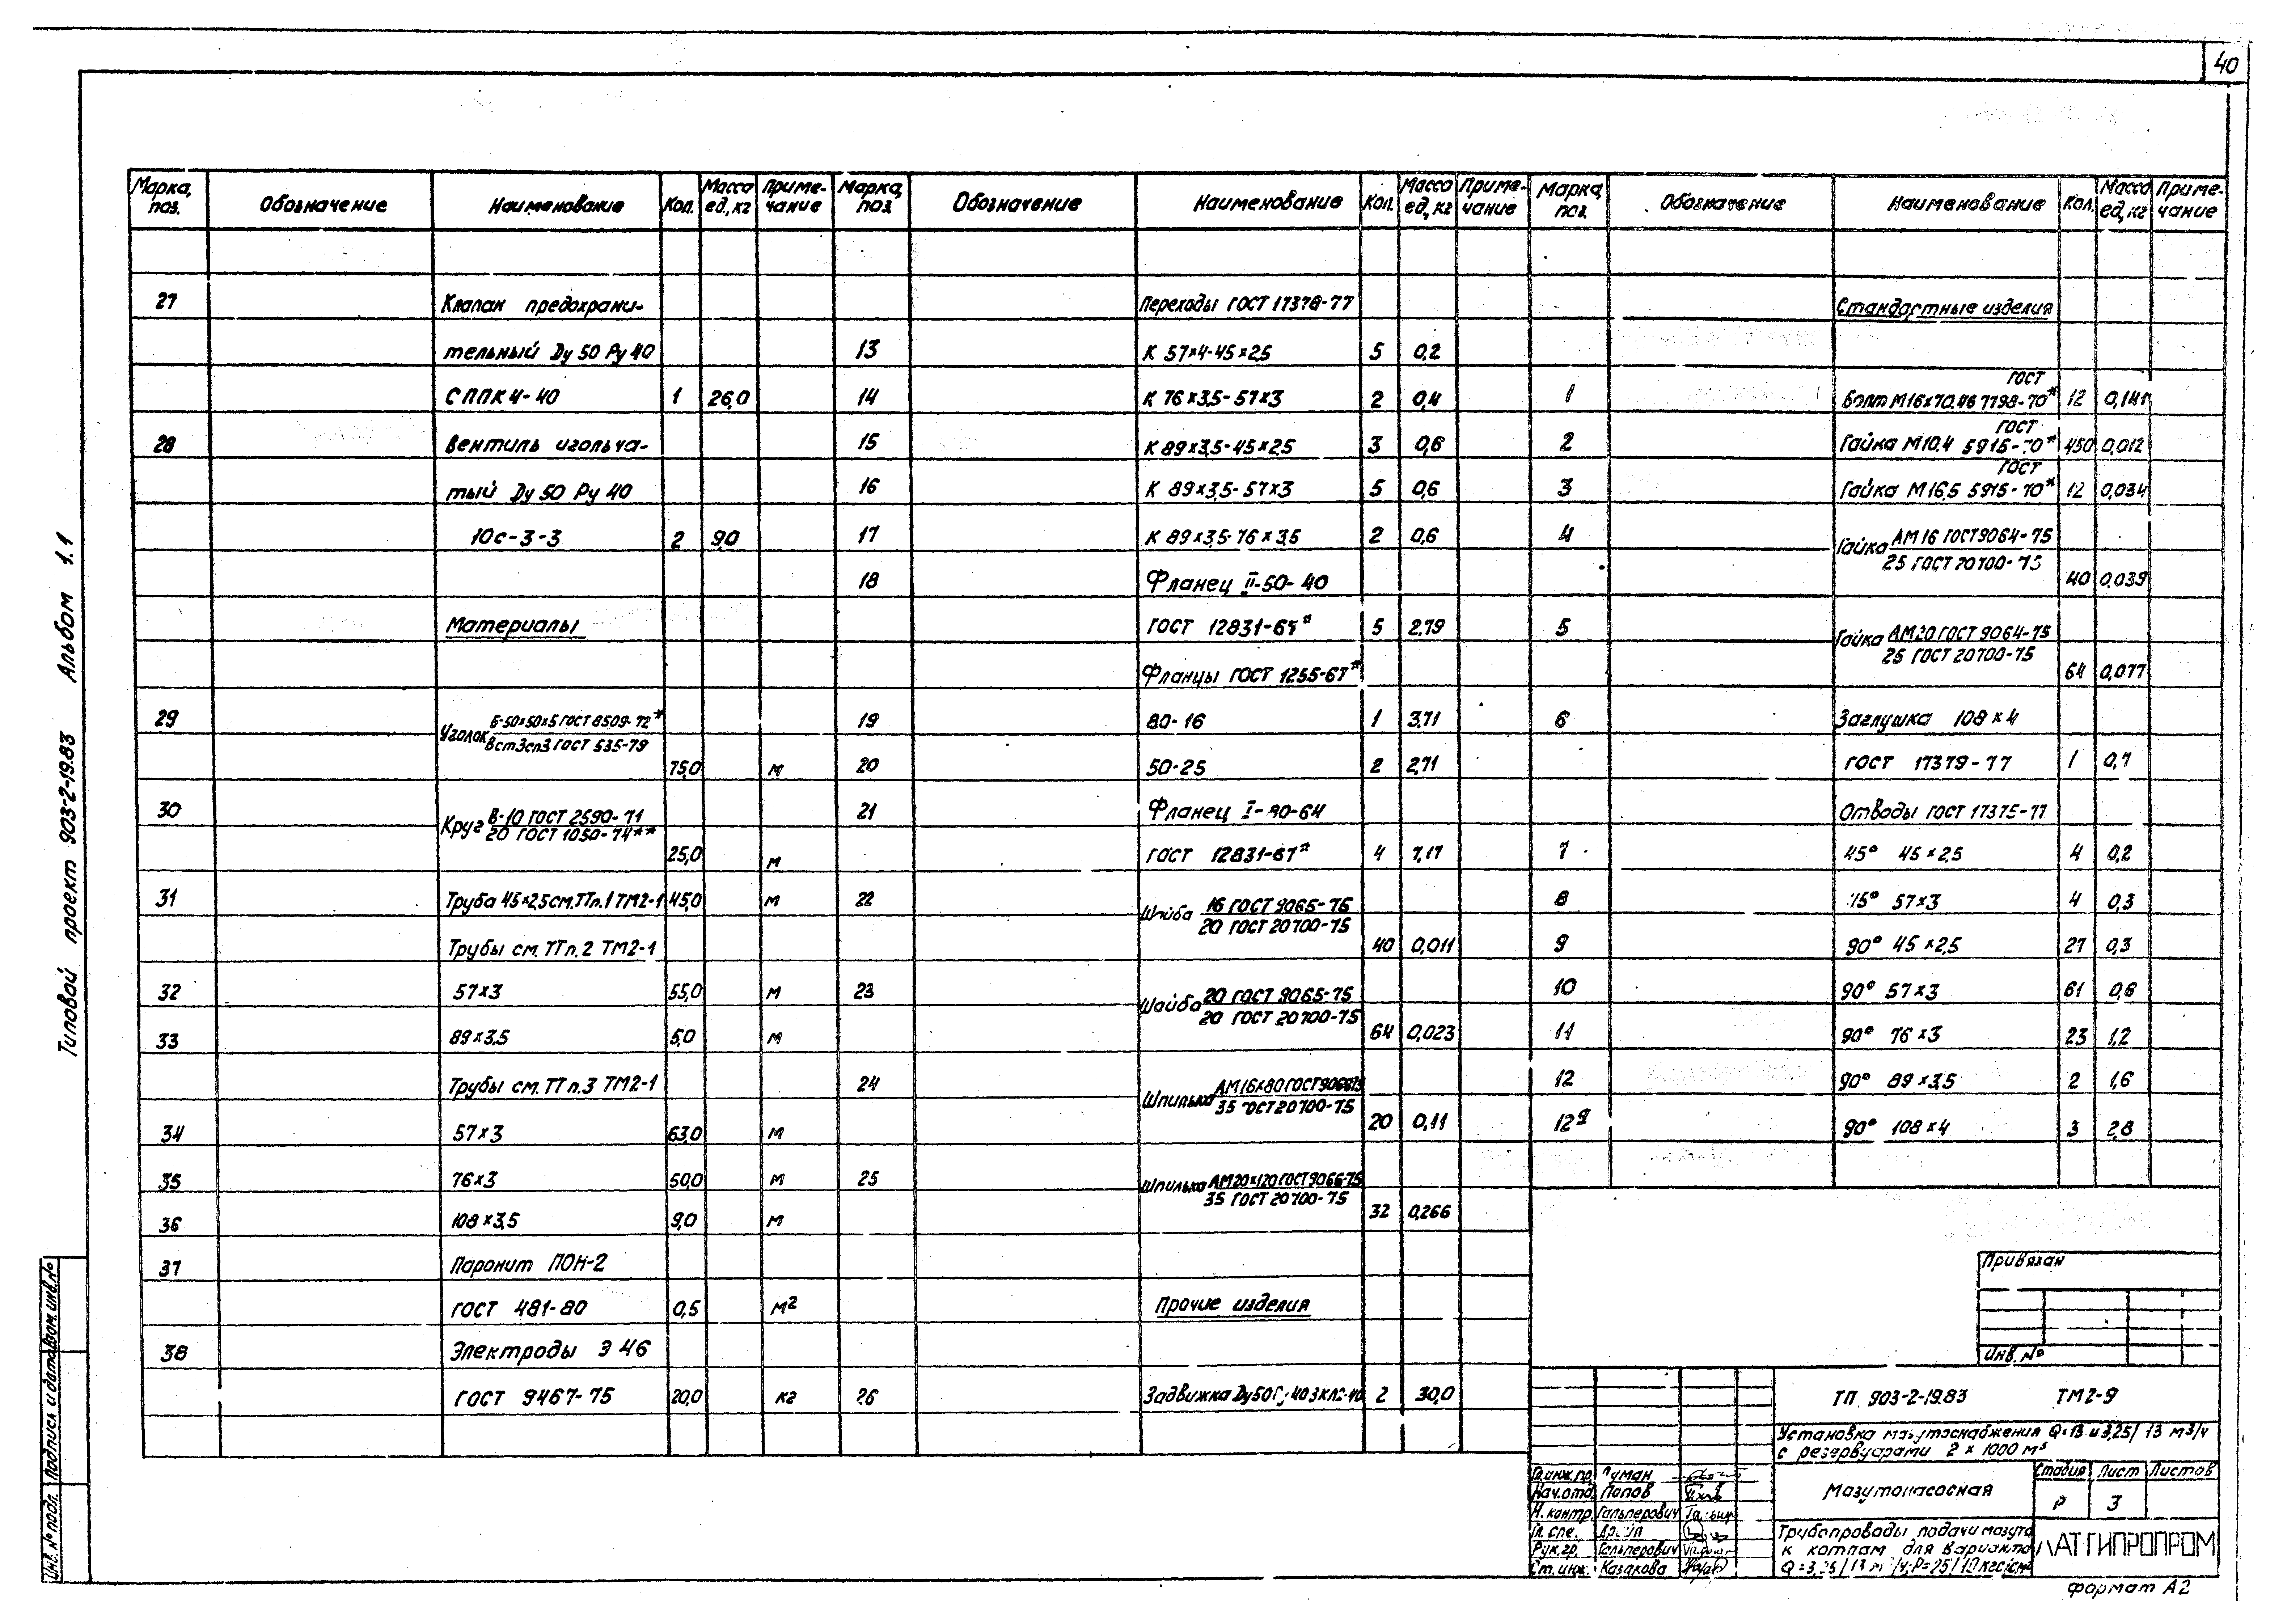 40
Марка, поз. Обозначение Наименование Кол. Масса ед., кг Приме-чание
27 Клапан предохрани-
тельный Dу 50 Ру 40
СППК4-40 1 26,0
28 Вентиль игольча-
тый Dу 50 Ру 40
10с-3-3 2 9,0
Материалы
29 Уголок Б-50×50×5 ГОСТ 8509-72*
ВСт3сп3 ГОСТ 535-79
75,0 м
30 Круг В-10 ГОСТ 2590-71
20 ГОСТ 1050-74**
25,0 м
31 Труба 45×2,5 см. ТТ п.1 ТМ2-1 45,0 м
Трубы см. ТТ п. 2 ТМ2-1
32 57×3 55,0 м
33 89×3,5 5,0 м
Трубы см. ТТ п. 3 ТМ2-1
34 57×3 63,0 м
35 76×3 50,0 м
36 108×3,5 9,0 м
37 Паронит ПОН-2
ГОСТ 481-80 0,5 м2
38 Электроды Э 46
ГОСТ 9467-75 20,0 кг
Марка, поз. Обозначение Наименование Кол. Масса ед., кг Приме-чание
Переходы ГОСТ 17378-77
13 К 57×4-45×2,5 5 0,2
14 К 76×3,5-57×3 2 0,4
15 К 89×3,5-45×2,5 3 0,6
16 К 89×3,5-57×3 5 0,6
17 К 89×3,5-76×3,5 2 0,6
18 Фланец II-50-40
ГОСТ 12831-67* 5 2,79
Фланцы ГОСТ 1255-67*
19 80-16 1 3,71
20 50-25 2 2,71
21 Фланец I-80-64
ГОСТ 12831-67* 4 7,17
22 Шайба 16 ГОСТ 9065-75
20 ГОСТ 20700-75
40 0,011
23 Шайба 20 ГОСТ 9065-75
20 ГОСТ 20700-75
64 0,023
24 Шпилька АМ16×80 ГОСТ 9066-75
35 ГОСТ 20700-75
20 0,11
25 Шпилька АМ20×120 ГОСТ 9066-75
35 ГОСТ 20700-75
32 0,266
Прочие изделия
26 Задвижка Dу50 2 30,0
Марка, поз. Обозначение Наименование Кол. Масса ед., кг Приме-чание
Стандартные изделия
ГОСТ
1 Болт М16×70.46 7798-70* 12 0,141
ГОСТ
2 Гайка М10.4 5915-70* 450 0,012
ГОСТ
3 Гайка М16.5 5915-70* 12 0,034
4 Гайка АМ16 ГОСТ 9064-75
25 ГОСТ 20700-75
40 0,039
5 Гайка АМ20 ГОСТ 9064-75
25 ГОСТ 20700-75
64 0,077
6 Заглушка 108×4
ГОСТ 17379-77 1 0,7
Отводы ГОСТ 17375-77
7 45° 45×2,5 4 0,2
8 45° 57×3 4 0,3
9 90° 45×2,5 27 0,3
10 90° 57×3 61 0,6
11 90° 76×3 23 1,2
12 90° 89×3,5 2 1,6
12а 90° 108×4 3 2,8
Типовой проект 903-2-19.83 Альбом 1.1
Инв. № подл. Подпись и дата Взам. инв. №
Привязан
Инв. №
ТП 903-2-19.83 ТМ2-9
Установка мазутоснабжения Q=13 и 3,25/13 м³/ч
с резервуарами 2×1000 м³
Гл. инж. пр.
Нач. отд. Попов
Н. контр. Гальперович
Гл. спе.
Рук. гр. Гальперович
Ст. инж. Казакова
Мазутонасосная
Стадия Лист Листов
Р 3
Трубопроводы подачи мазута
к котлам для варианта
Q=3,25/13 м³/ч; Р=25/10 кгс/см²
ЛАТГИПРОПРОМ
формат А2